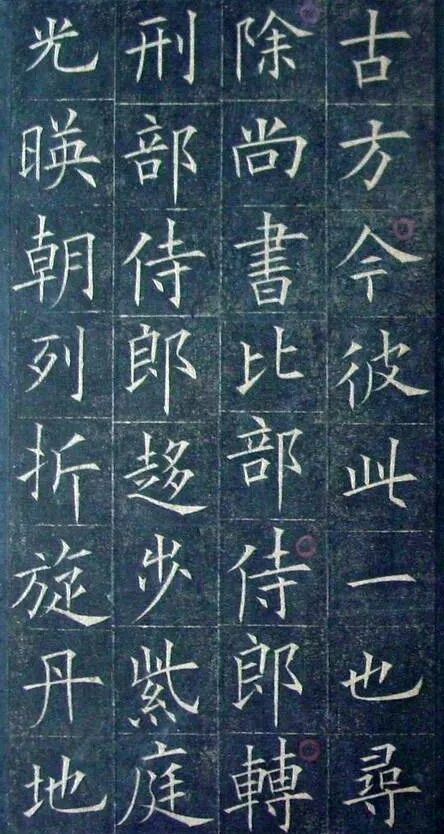 古方今彼此一也尋
除尚書比部侍郎轉
刑部侍郎趍步紫庭
光暎朝列折旋丹地